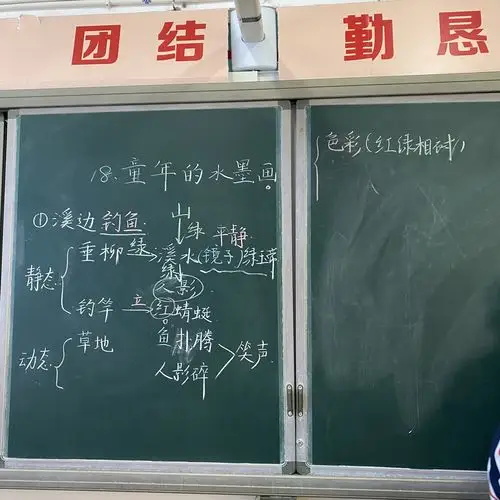 团结 勤恳
18.童年的水墨画
①溪边 钓鱼.
山
绿 平静
静态 垂柳 绿 溪水(镜子)绿
绿
人影
钓竿 立 红蜻蜓
动态 草地 鱼扑腾
人影碎 笑声
色彩(红绿相衬)